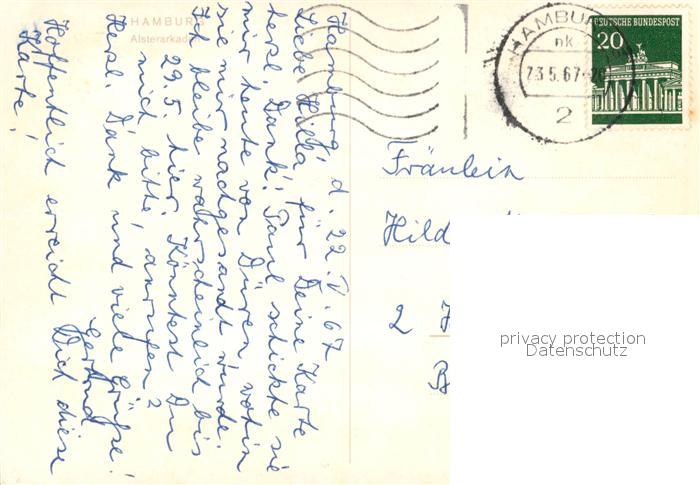 HAMBURG
Alsterarkaden
Hamburg, d. 22.V.67
Liebe Hilla, für Deine Karte
herzl. Dank! Paul schickte sie
mir heute von Düren, wohin
sie mir nachgesandt wurde.
Ich bleibe wahrscheinlich bis
29.5. hier. Könntest Du
mich bitte, anrufen?
Herzl. Dank und viele Grüße!
Gertrud
Hoffentlich erreicht Dich diese
Karte!
HAMBURG
nk
23.5.67-20
2
DEUTSCHE BUNDESPOST
20
Fräulein
Hild
2
privacy protection
Datenschutz